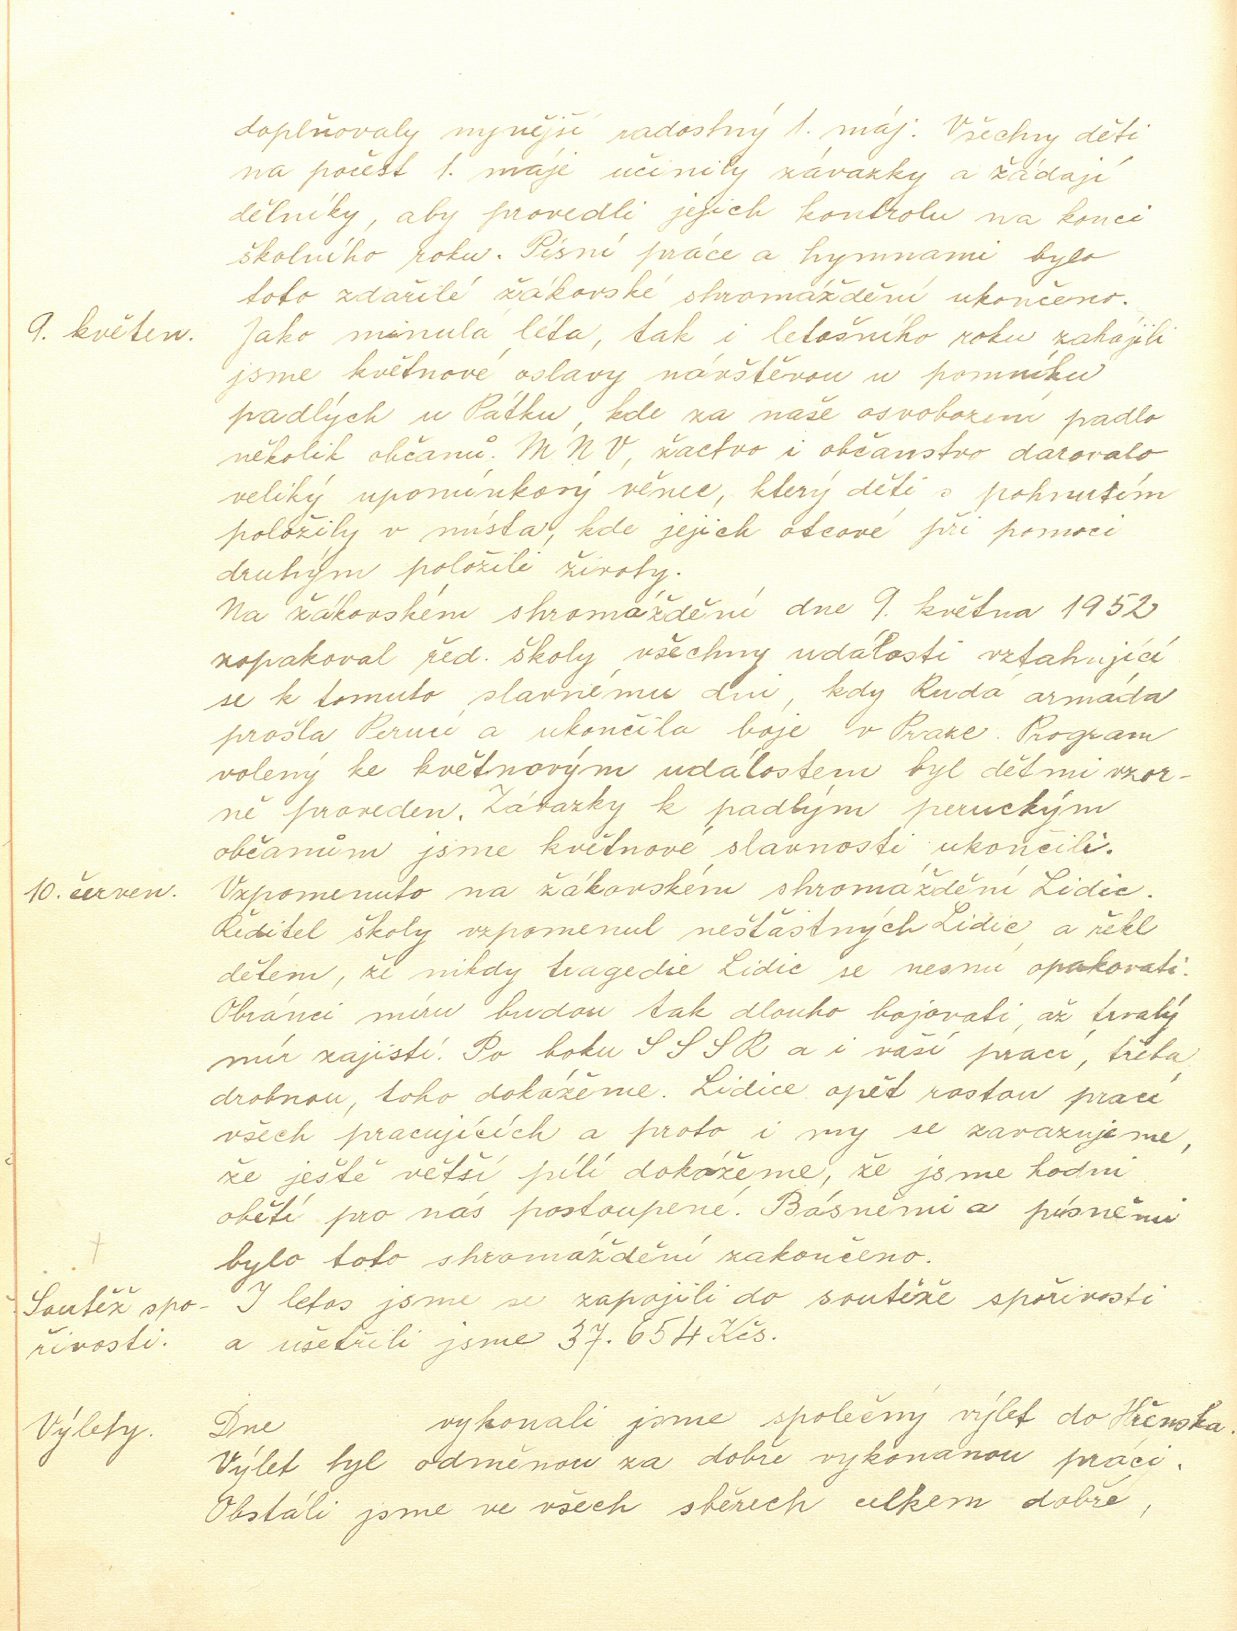 doplňovaly nynější radostný 1. máj. Všechny děti
na počest 1. máje učinily závazky a žádají
dělníky, aby provedli jejich kontrolu na konci
školního roku. Písní práce a hymnami bylo
toto zdařilé žákovské shromáždění ukončeno.
9. květen. Jako minulá léta, tak i letošního roku zahájili
jsme květnové oslavy návštěvou u pomníku
padlých u Pátku, kde za naše osvobození padlo
několik občanů. M N V, žactvo i občanstvo darovalo
veliký upomínkový věnec, který děti s pohnutím
položily v místa, kde jejich otcové při pomoci
druhým položili životy.
Na žákovském shromáždění dne 9. května 1952
zopakoval řed. školy všechny události vztahující
se k tomuto slavnému dni, kdy Rudá armáda
prošla Perucí a ukončila boje v Praze. Program
volený ke květnovým událostem byl dětmi vzor-
ně proveden. Závazky k padlým peruckým
občanům jsme květnové slavnosti ukončili.
10. červen. Vzpomenuto na žákovském shromáždění Lidic.
Ředitel školy vzpomenul nešťastných Lidic a řekl
dětem, že nikdy tragedie Lidic se nesmí opakovati.
Obránci míru budou tak dlouho bojovati, až trvalý
mír zajistí. Po boku S S S R a i vaší prací, třeba
drobnou, toho dokážeme. Lidice opět rostou prací
všech pracujících a proto i my se zavazujeme,
že ještě větší pílí dokážeme, že jsme hodni
obětí pro nás postoupené. Básněmi a písněmi
bylo toto shromáždění zakončeno.
Soutěž spo- I letos jsme se zapojili do soutěže spořivosti
řivosti. a ušetřili jsme 37.654 Kčs.
Výlety. Dne vykonali jsme společný výlet do Hřenska.
Výlet byl odměnou za dobře vykonanou práci.
Obstáli jsme ve všech sběrech celkem dobře,